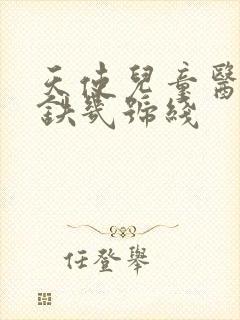 天使兒童醫
鉄幾號綫
任登舉